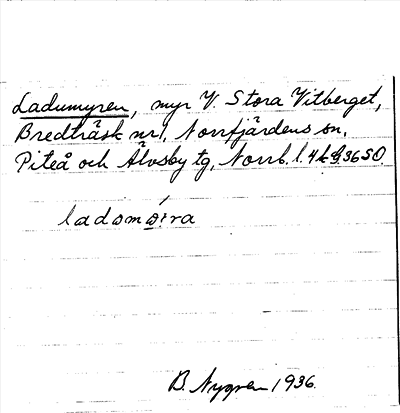 Ladumyren, myr V. Stora Vitberget,
Bredträsk nr 1, Norrfjärdens sn,
Piteå och Älvsby tg, Norrb. l. 36 SO.
ladomøira
B. Nygren 1936.